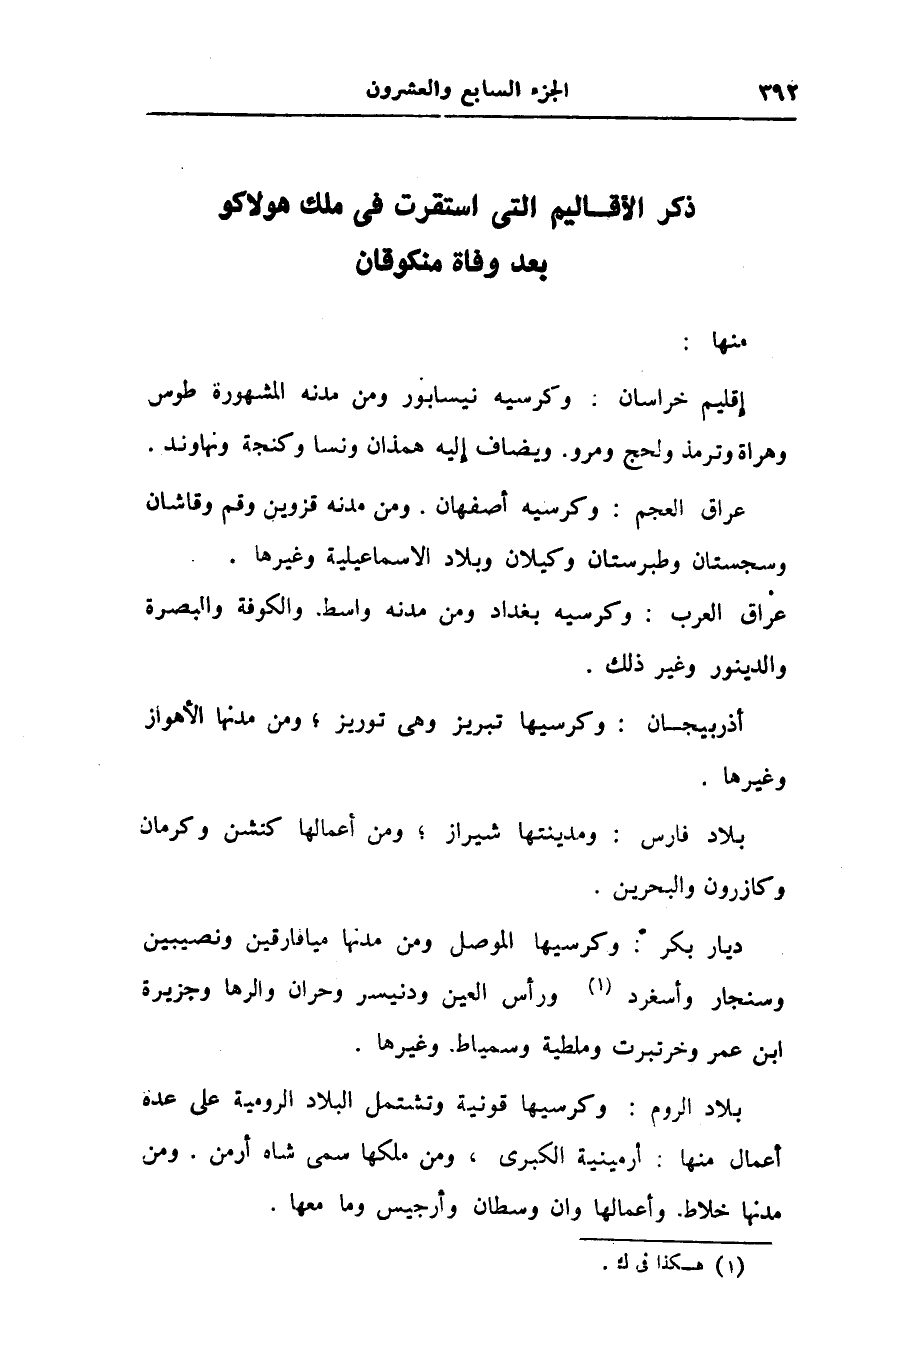 ٣٩٢ الجزء السابع والعشرون
ذكر الأقاليم التى استقرت فى ملك هولاكو
بعد وفاة منكوقان
منها :
إقليم خراسان : وكرسيه نيسابور ومن مدنه المشهورة طوس
وهراة وترمذ ولحج ومرو. ويضاف إليه همذان ونسا وكنجة ونهاوند .
عراق العجم : وكرسيه أصفهان . ومن مدنه قزوين وقم وقاشان
وسجستان وطبرستان وكيلان وبلاد الاسماعيلية وغيرها .
عراق العرب : وكرسيه بغداد ومن مدنه واسط. والكوفة والبصرة
والدينور وغير ذلك .
أذربيجان : وكرسيها تبريز وهى توريز ؛ ومن مدنها الأهواز
وغيرها .
بلاد فارس : ومدينتها شيراز ؛ ومن أعمالها كنشن وكرمان
وكازرون والبحرين .
ديار بكر : وكرسيها الموصل ومن مدنها ميافارقين ونصيبين
وسنجار وأسغرد (١) ورأس العين ودنيسر وحران والرها وجزيرة
ابن عمر وخرتبرت وملطية وسمياط. وغيرها .
بلاد الروم : وكرسيها قونية وتشتمل البلاد الرومية على عدة
أعمال منها : أرمينية الكبرى ، ومن ملكها سمى شاه أرمن . ومن
مدنها خلاط. وأعمالها وان وسطان وأرجيس وما معها .
(١) هكذا فى ك .